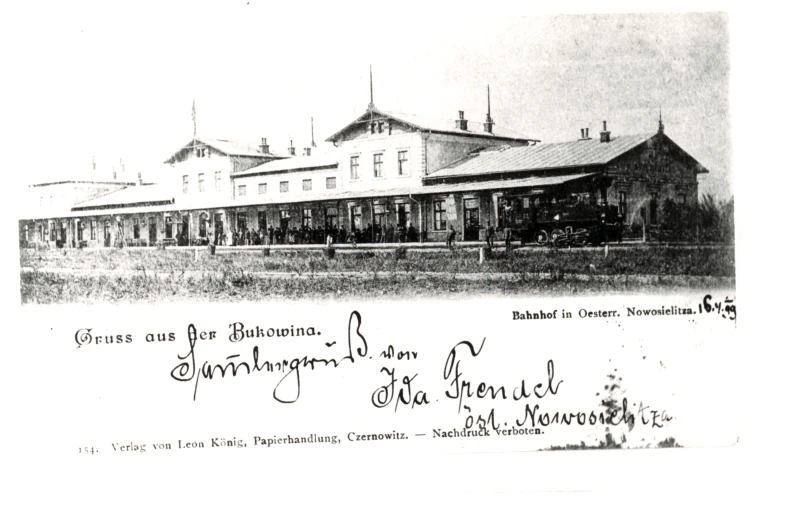 Bahnhof in Oesterr. Nowosielitza. 16.4.99
Gruss aus der Bukowina.
Sammlergruß von
Ida Frendel
öst. Nowosielitza
154. Verlag von Leon König, Papierhandlung, Czernowitz. — Nachdruck verboten.